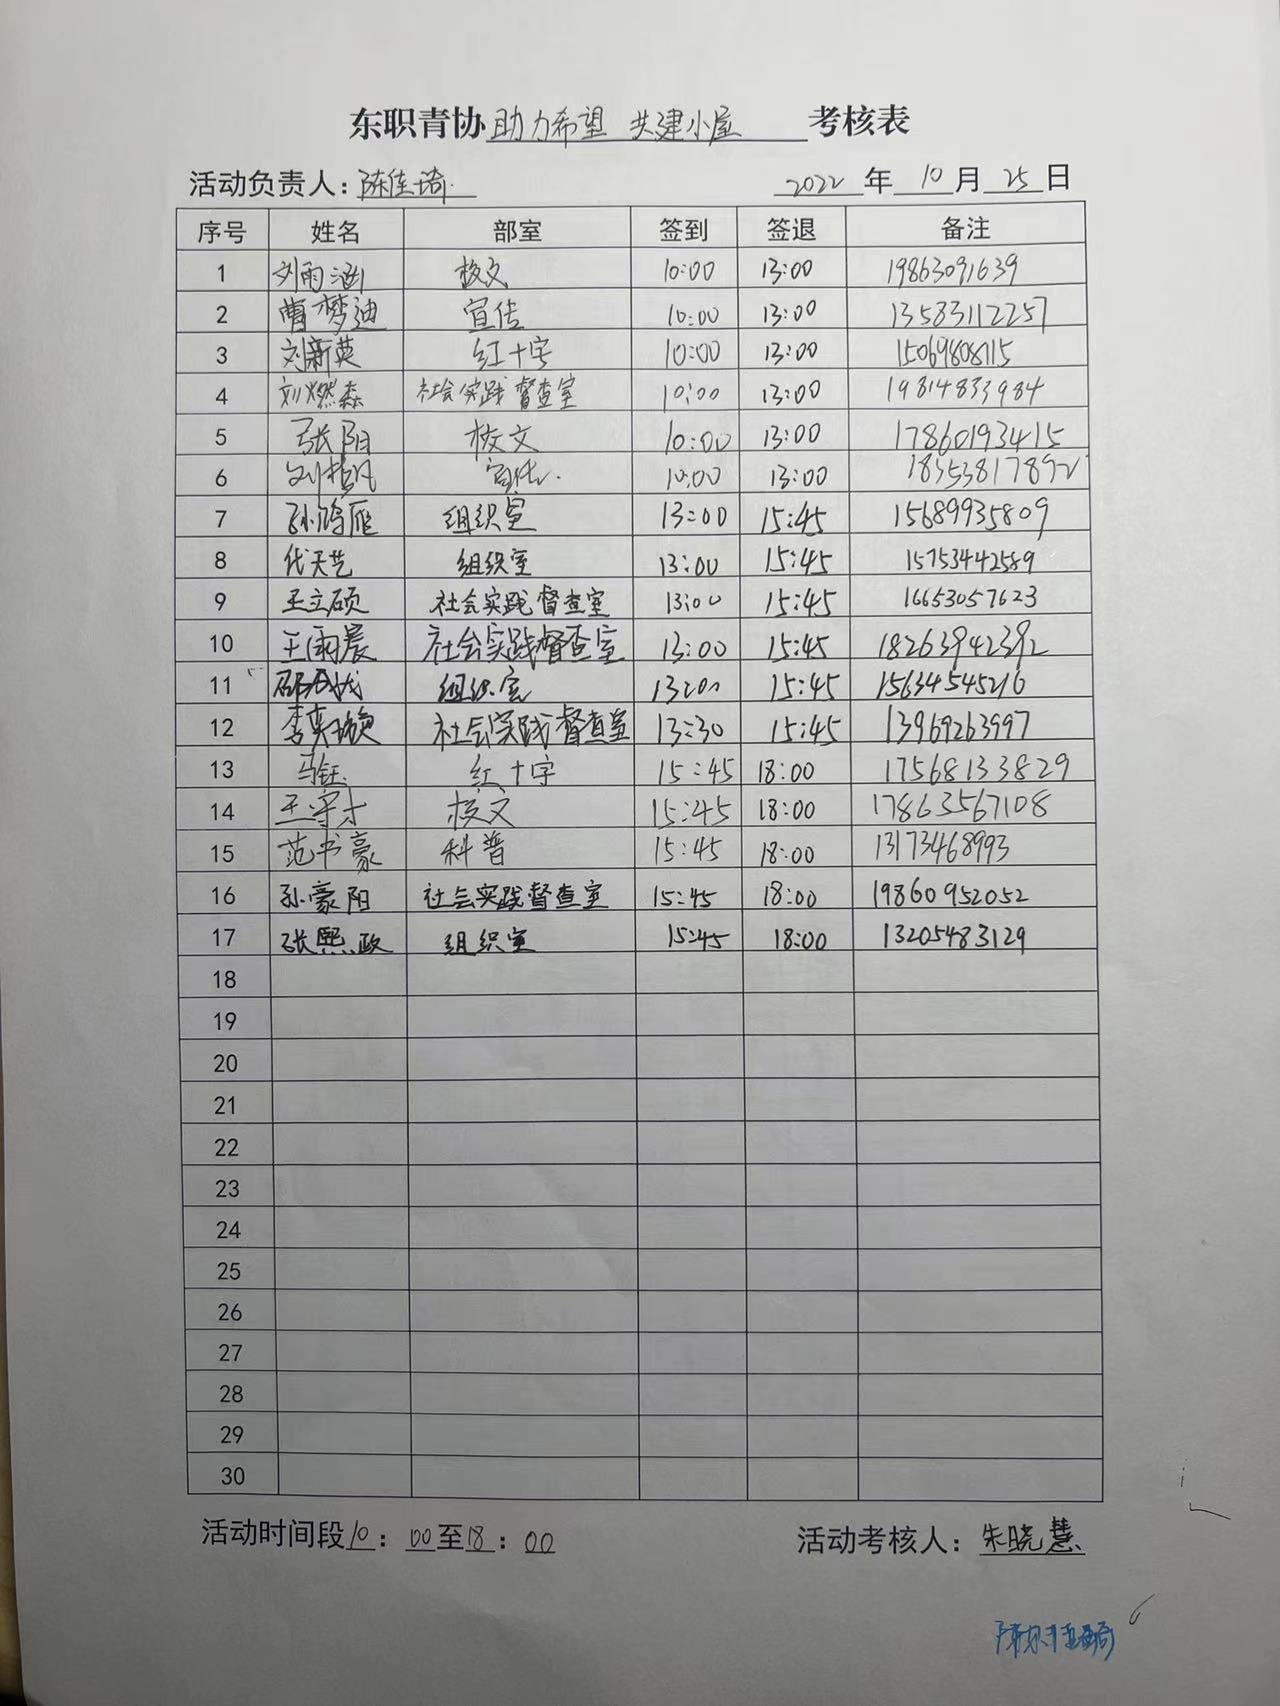 东职青协助力希望 共建小屋 考核表
活动负责人：陈佳琦 2022年10月25日
序号 姓名 部室 签到 签退 备注
1 刘雨涵 校文 10:00 13:00 19863091639
2 曹梦迪 宣传 10:00 13:00 13583112257
3 刘新英 红十字 10:00 13:00 15069808115
4 刘燃森 社会实践督查室 10:00 13:00 19814833984
5 张阳 校文 10:00 13:00 17860193415
6 宣传 10:00 13:00 18353817892
7 孙鸿雁 组织室 13:00 15:45 15689935809
8 代天艺 组织室 13:00 15:45 15753442589
9 王立硕 社会实践督查室 13:00 15:45 16653057623
10 王雨晨 社会实践督查室 13:00 15:45 18263942392
11 组织室 13:00 15:45 15634545216
12 李奕璇 社会实践督查室 13:30 15:45 13969263997
13 马钰 红十字 15:45 18:00 17568133829
14 王守才 校文 15:45 18:00 17863567108
15 范书豪 科普 15:45 18:00 13173468993
16 孙豪阳 社会实践督查室 15:45 18:00 19860952052
17 张熙政 组织室 15:45 18:00 13205483129
18
19
20
21
22
23
24
25
26
27
28
29
30
活动时间段10：00至18：00 活动考核人：朱晓慧